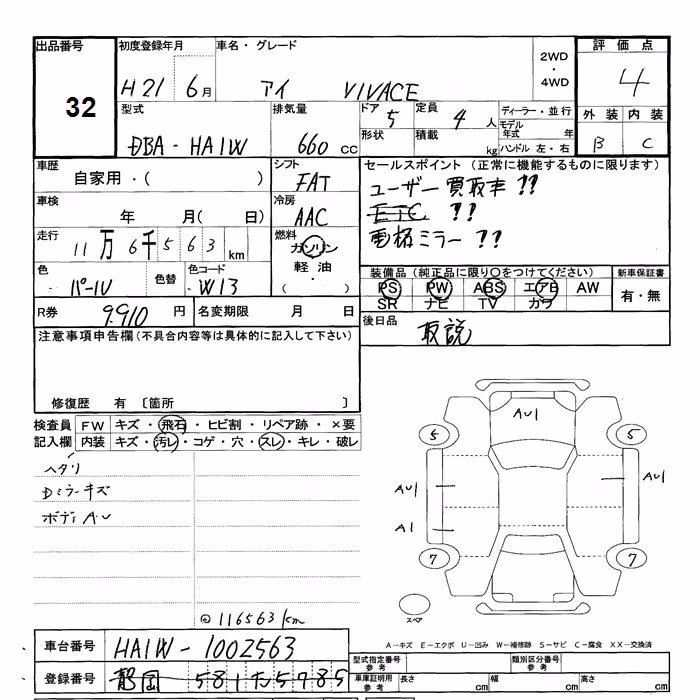 出品番号 初度登録年月 車名・グレード 2WD・4WD 評価点
32 H21 6月 アイ VIVACE 4
型式 排気量 ドア 5 定員 4人 ディーラー・並行 外装 内装
DBA-HA1W 660cc 形状 積載 kg モデル年式 年 B C
ハンドル 左・右
車歴 シフト セールスポイント(正常に機能するものに限ります)
自家用・( ) FAT ユーザー買取車??
車検 冷房 ETC ??
年 月( 日) AAC 電格ミラー??
走行 燃料
11万6千563km ガソリン
軽油
・
色 色替 色コード 装備品(純正品に限り○をつけてください) 新車保証書
パール W13 PS PW ABS エアB AW 有・無
SR ナビ TV カワ
R券 9.910円 名変期限 月 日 後日品
取説
注意事項申告欄(不具合内容等は具体的に記入して下さい)
修復歴 有 〔箇所 〕
検査員 FW キズ・飛石・ヒビ割・リペア跡・×要
記入欄 内装 キズ・汚レ・コゲ・穴・スレ・キレ・破レ
ヘタリ
Dミラーキズ
ボディAU
AU1
5 5
AU1 AU1
A1
7 7
スペア
@116563km
A-キズ E-エクボ U-凹み W-補修跡 S-サビ C-腐食 XX-交換済
車台番号 HA1W-1002563
型式指定番号 参考 類別区分番号 参考
登録番号 静岡 581た5985
車庫証明用 参考 長さ cm 幅 cm 高さ cm